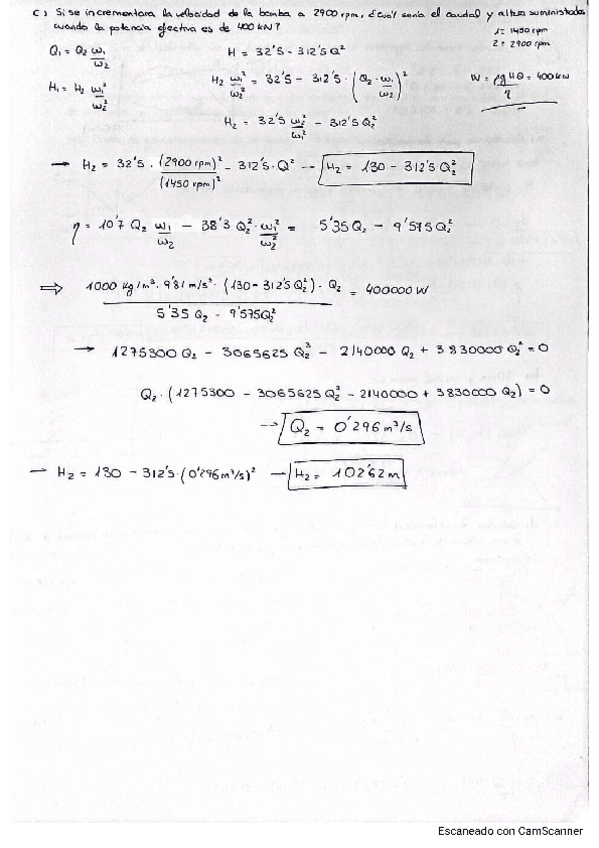 c) Si se incrementara la velocidad de la bomba a 2900 rpm, ¿Cuál sería el caudal y altura suministrada
cuando la potencia efectiva es de 400 kN?
1 = 1450 rpm
2 = 2900 rpm
Q₁ = Q₂ ω₁/ω₂
H = 32'5 - 312'5 Q²
H₁ = H₂ ω₁²/ω₂²
H₂ ω₁²/ω₂² = 32'5 - 312'5 · (Q₂ · ω₁/ω₂)²
W = ρgHQ/η = 400 kW
H₂ = 32'5 ω₂²/ω₁² - 312'5 Q₂²
→ H₂ = 32'5 · (2900 rpm)²/(1450 rpm)² - 312'5 · Q² → H₂ = 130 - 312'5 Q₂²
η = 10'7 Q₂ ω₁/ω₂ - 38'3 Q₂² · ω₁²/ω₂² = 5'35 Q₂ - 9'575 Q₂²
⇒ 1000 kg/m³ · 9'81 m/s² · (130 - 312'5 Q₂²) · Q₂ / 5'35 Q₂ - 9'575 Q₂² = 400000 W
→ 1275300 Q₂ - 3065625 Q₂³ - 2140000 Q₂ + 3830000 Q₂² = 0
Q₂ · (1275300 - 3065625 Q₂² - 2140000 + 3830000 Q₂) = 0
→ Q₂ = 0'296 m³/s
→ H₂ = 130 - 312'5 · (0'296 m³/s)² → H₂ = 102'62 m
Escaneado con CamScanner